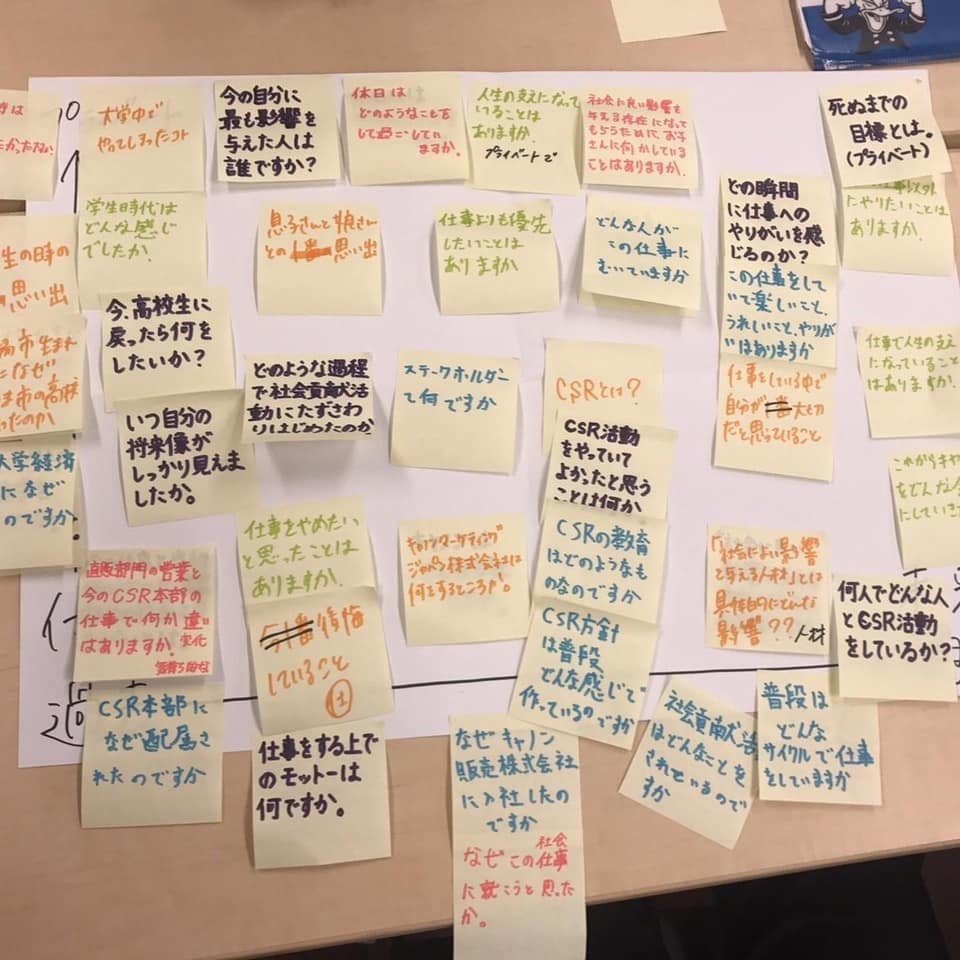 大学中で
やってしまったコト
今の自分に
最も影響を
与えた人は
誰ですか?
休日は
どのようなことを
して過ごしてい
ますか。
人生の支えになって
いることは
ありますか。
プライベートで
社会に良い影響を
与える存在になって
もらうためにお子
さんに何かしている
ことはありますか。
死ぬまでの
目標とは。
(プライベート)
にやりたいことは
ありますか。
学生時代は
どんな感じ
でしたか。
息子さんと娘さん
との一番思い出
仕事よりも優先
したいことは
ありますか
どんな人が
この仕事に
むいていますか
どの瞬間
に仕事への
やりがいを感
じるのか?
この仕事をして
いて楽しいこと、
うれしいこと、やりが
いはありますか
仕事をしている中で
自分が一番大切
だと思っていること
生の時の
思い出
今、高校生に
戻ったら何を
したいか?
いつ自分の
将来像が
しっかり見えま
したか。
どのような過程
で社会貢献活
動にたずさわ
りはじめたのか
ステークホルダー
て何ですか
CSRとは?
CSR活動
をやっていて
よかったと思う
ことは何か
CSRの教育
はどのようなも
のなのですか
CSR方針
は普段
どんな感じで
作っているのですか
仕事で人生の支え
になっていること
はありますか!
市生まれ
になぜ
市の高校
大学経済
になぜ
のですか
直販部門の営業と
今のCSR本部の
仕事で何か違い
はありますか。変化
CSR本部に
なぜ配属さ
れたのですか
仕事をやめたい
と思ったことは
ありますか!
一番後悔
していること
仕
仕事をする上で
のモットーは
何ですか。
キヤノンマーケティング
ジャパン株式会社は
何をするところか。
なぜキャノン
販売株式会社
に入社したの
ですか
なぜこの社会仕事
に就こうと思った
か。
「社会によい影響
を与える人材」とは
具体的にどんな
影響??
人材
何人でどんな人
とCSR活動
をしているか?
社会貢献活動
はどんなことを
されているので
すか
普段は
どんな
サイクルで仕事
をしていますか